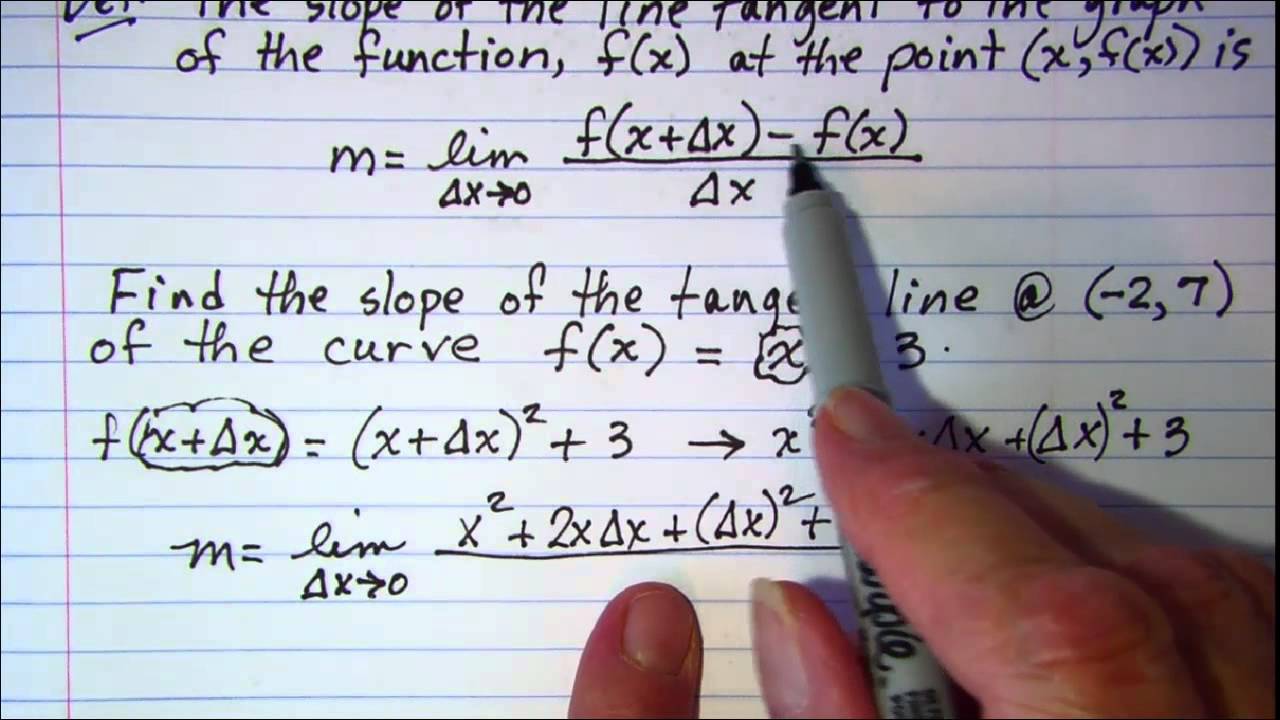 Def: The slope of the line tangent to the graph
of the function, f(x) at the point (x, f(x)) is
m = lim Δx→0 f(x+Δx) - f(x) / Δx
Find the slope of the line @ (-2, 7)
of the curve f(x) = x 3.
f(x+Δx) = (x+Δx)² + 3 → x² Δx + (Δx)² + 3
m = lim Δx→0 x² + 2xΔx + (Δx)² +